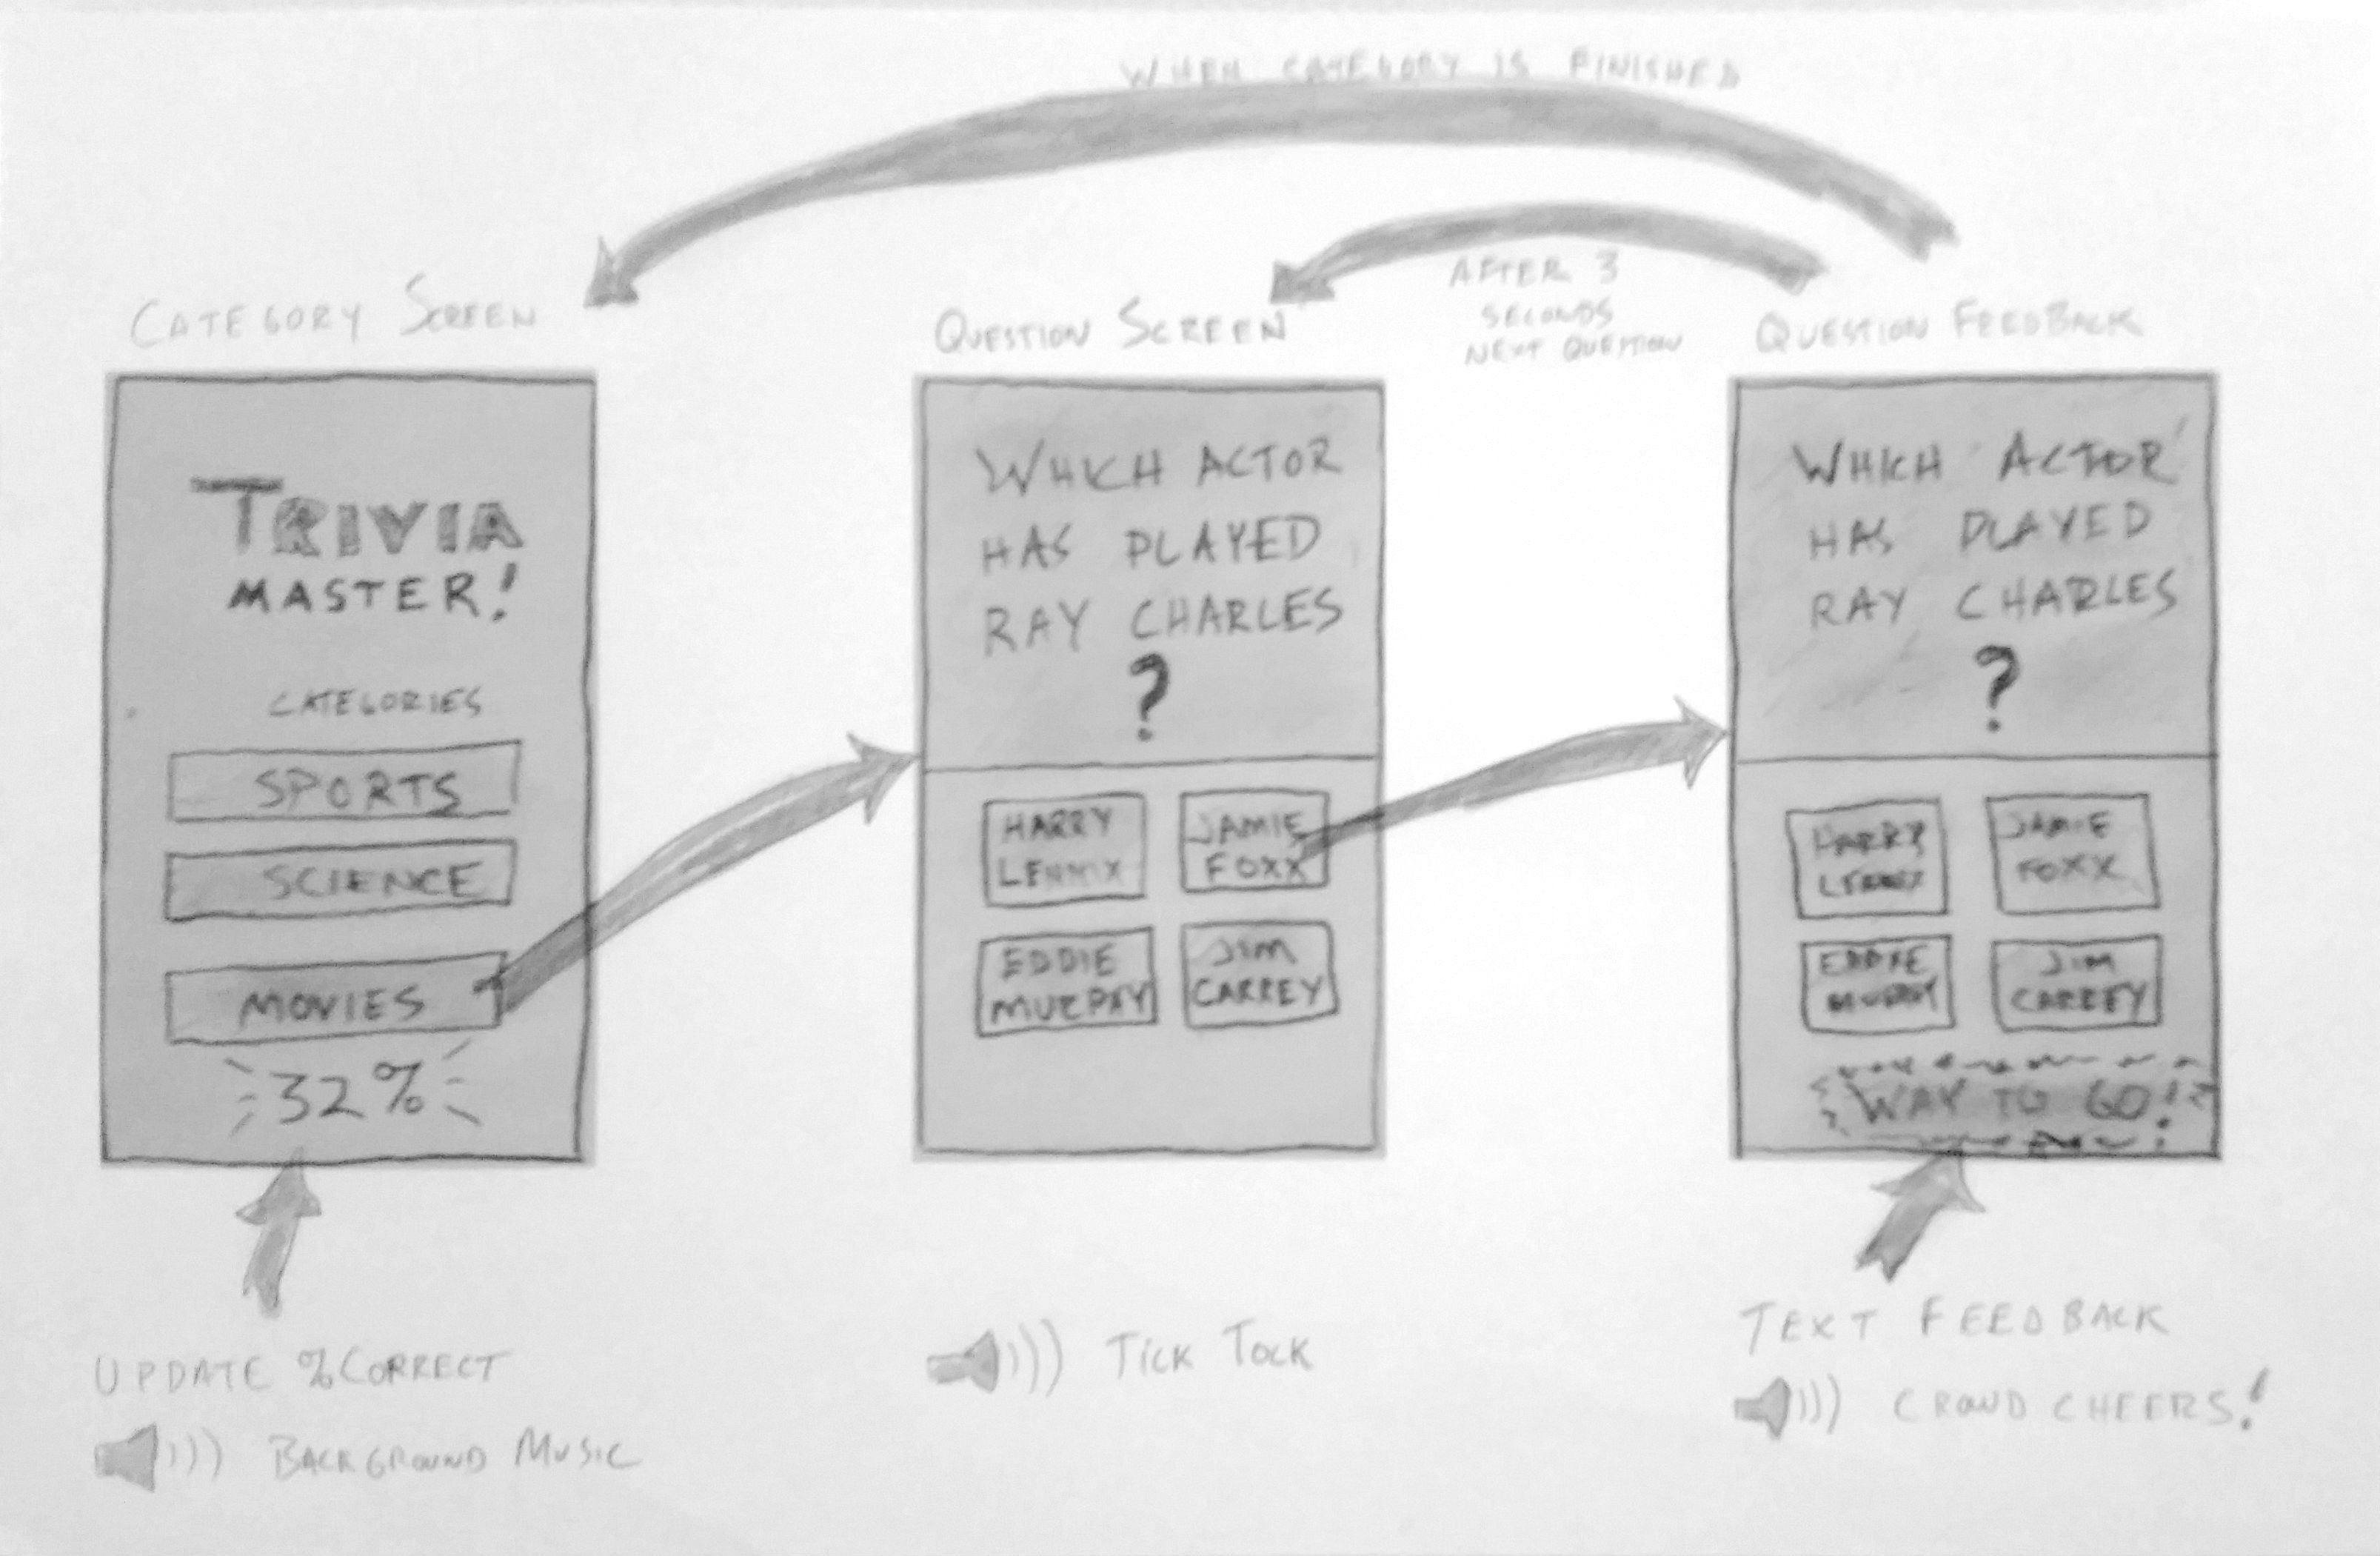 WHEN CATEGORY IS FINISHED
AFTER 3
SECONDS
NEXT QUESTION
CATEGORY SCREEN
TRIVIA
MASTER!
CATEGORIES
SPORTS
SCIENCE
MOVIES
32%
UPDATE % CORRECT
BACKGROUND MUSIC
QUESTION SCREEN
WHICH ACTOR
HAS PLAYED
RAY CHARLES
?
HARRY
LENNIX
JAMIE
FOXX
EDDIE
MURPHY
JIM
CARREY
TICK TOCK
QUESTION FEEDBACK
WHICH ACTOR
HAS PLAYED
RAY CHARLES
?
HARRY
LENNIX
JAMIE
FOXX
EDDIE
MURPHY
JIM
CARREY
WAY TO GO!
TEXT FEEDBACK
CROWD CHEERS!